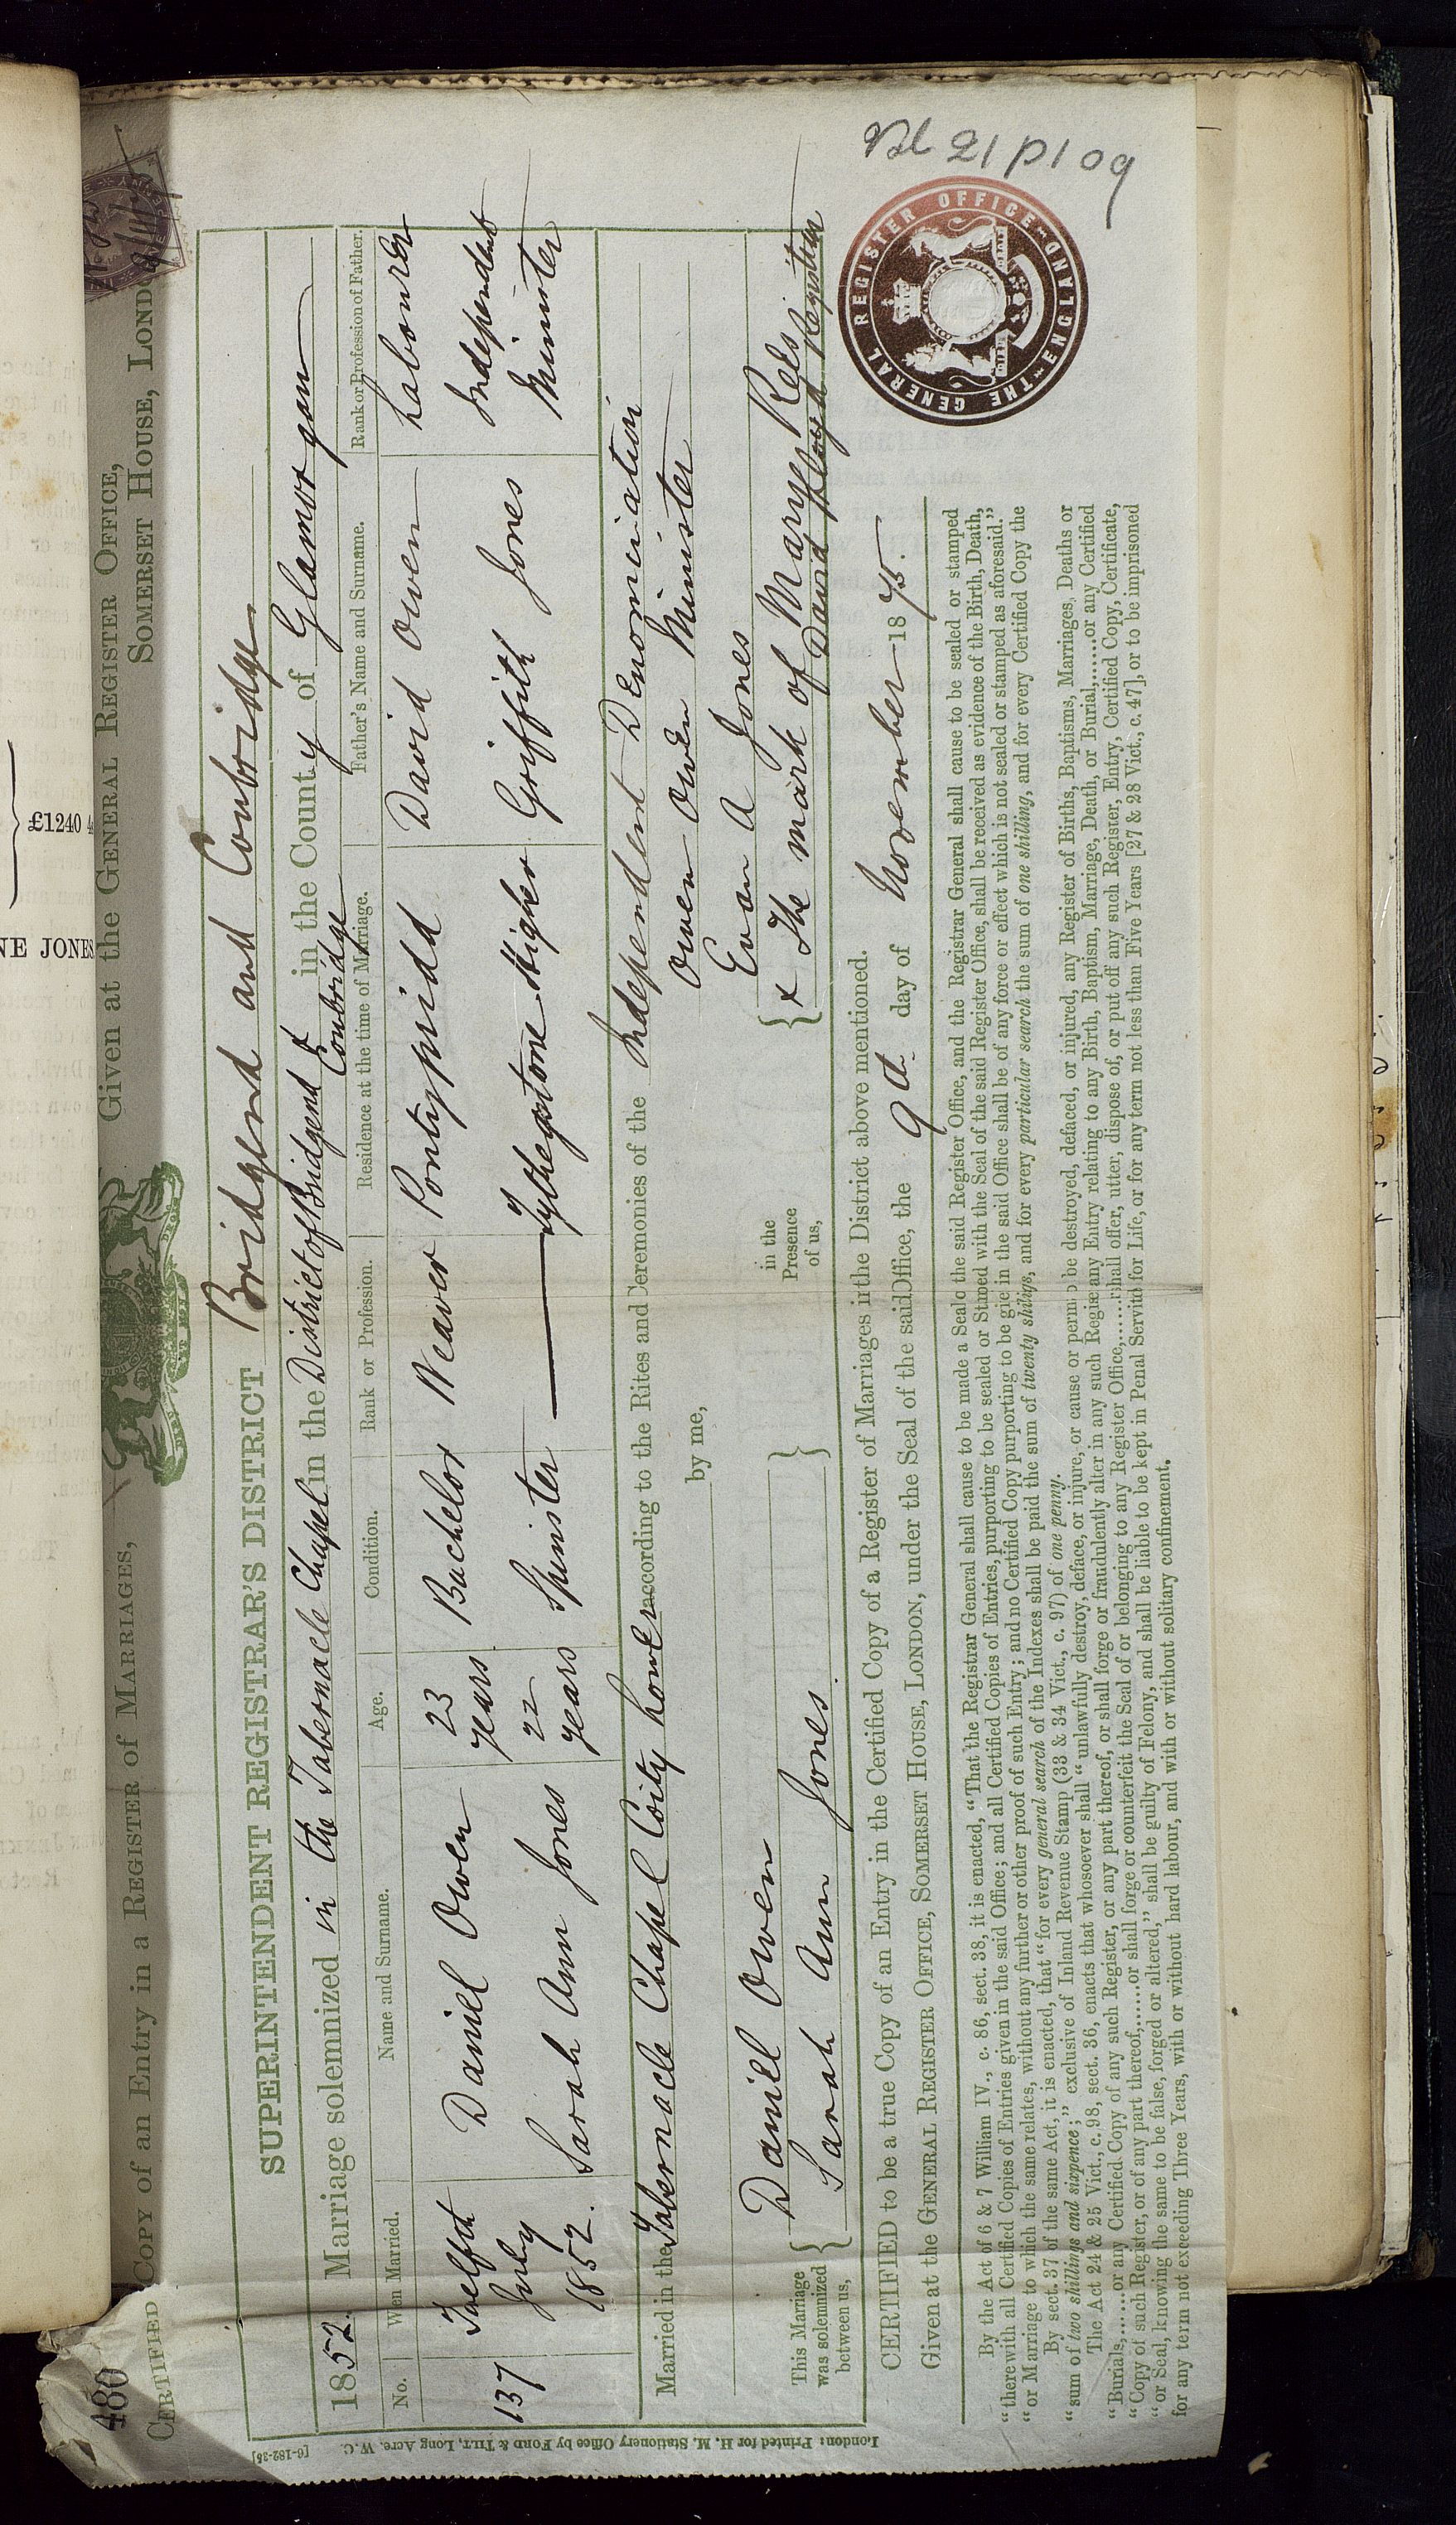 480
CERTIFIED COPY of an Entry in a REGISTER of MARRIAGES,
Given at the GENERAL REGISTER OFFICE,
SOMERSET HOUSE, LONDON
SUPERINTENDENT REGISTRAR'S DISTRICT Bridgend and Cowbridge
1852. Marriage solemnized in the Tabernacle Chapel in the District of Bridgend & Cowbridge in the County of Glamorgan
No. When Married. Name and Surname. Age. Condition. Rank or Profession. Residence at the time of Marriage. Father's Name and Surname. Rank or Profession of Father.
137 Twelfth July 1852.
Daniel Owen 23 years Bachelor Weaver Pontypridd David Owen Labourer
Sarah Ann Jones 22 years Spinster Tythegstone Higher Griffith Jones Independent Minister
Married in the Tabernacle Chapel Coity Lower according to the Rites and Ceremonies of the Independent Denomination
by me, Owen Owen Minister
This Marriage was solemnized between us, { Daniel Owen Sarah Ann Jones. }
in the Presence of us, { Evan A Jones
x The mark of Mary Rees
David Lloyd Registrar
CERTIFIED to be a true Copy of an Entry in the Certified Copy of a Register of Marriages in the District above mentioned.
Given at the GENERAL REGISTER OFFICE, SOMERSET HOUSE, LONDON, under the Seal of the said Office, the 9th day of November 1895.
By the Act of 6 & 7 William IV., c. 86, sect. 38, it is enacted, "That the Registrar General shall cause to be made a Seal o the said Register Office, and the Registrar General shall cause to be sealed or stamped
"therewith all Certified Copies of Entries given in the said Office; and all Certified Copies of Entries, purporting to be sealed or Stmed with the Seal of the said Register Office, shall be received as evidence of the Birth, Death,
"or Marriage to which the same relates, without any further or other proof of such Entry; and no Certified Copy purporting to be gie in the said Office shall be of any force or effect which is not sealed or stamped as aforesaid."
By sect. 37 of the same Act, it is enacted, that "for every general search of the Indexes shall be paid the sum of twenty shiligs, and for every particular search the sum of one shilling, and for every Certified Copy the
"sum of two shillings and sixpence;" exclusive of Inland Revenue Stamp (33 & 34 Vict., c. 97) of one penny.
The Act 24 & 25 Vict., c. 98, sect. 36, enacts that whosoever shall "unlawfully destroy, deface, or injure, or cause or permi o be destroyed, defaced, or injured, any Register of Births, Baptisms, Marriages, Deaths or
"Burials,......or any Certified Copy of any such Register, or any part thereof, or shall forge or fraudulently alter in any such Regise any Entry relating to any Birth, Baptism, Marriage, Death, or Burial,......or any Certified
"Copy of such Register, or of any part thereof,......or shall forge or counterfeit the Seal of or belonging to any Register Office,......shall offer, utter, dispose of, or put off any such Register, Entry, Certified Copy, Certificate,
"or Seal, knowing the same to be false, forged or altered," shall be guilty of Felony, and shall be liable to be kept in Penal Servitd for Life, or for any term not less than Five Years [27 & 28 Vict., c. 47], or to be imprisoned
for any term not exceeding Three Years, with or without hard labour, and with or without solitary confinement.
THE GENERAL REGISTER OFFICE ENGLAND
[6-182-35] London: Printed for H. M. Stationery Office by FORD & TILT, Long Acre. W.C.
£1240
NE JONES